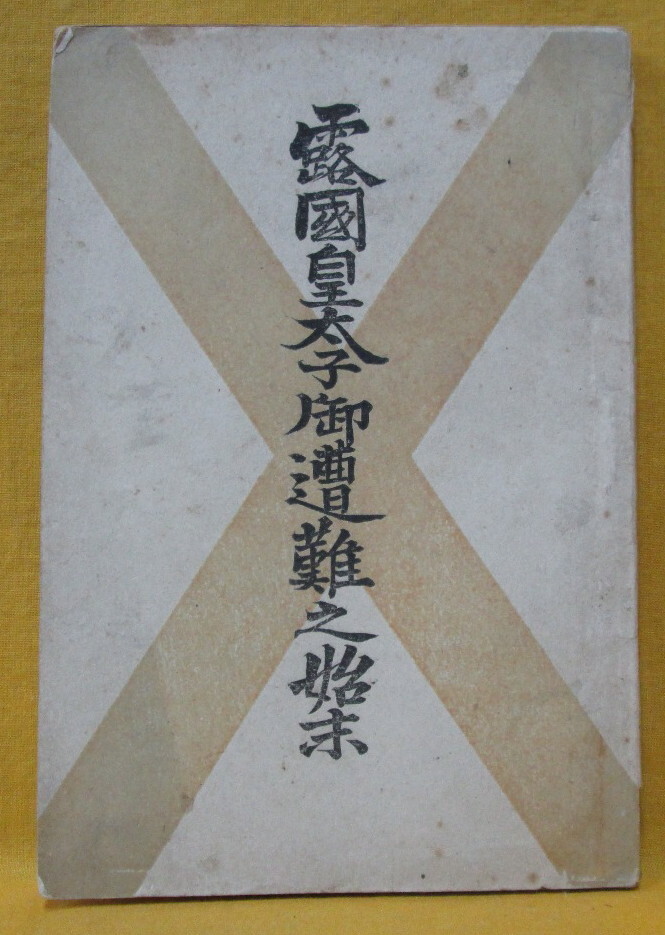 露國皇太子御遭難之始末